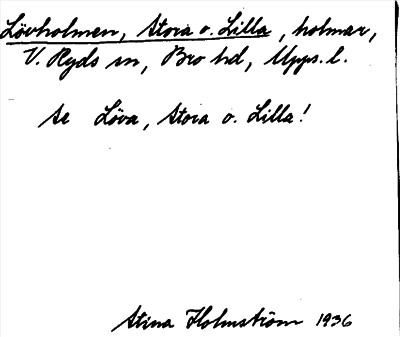 Lövholmen, Stora o. Lilla, holmar,
V. Ryds sn, Bro hd, Upps. l.
Se Löva, Stora o. Lilla!
Stina Holmström 1936